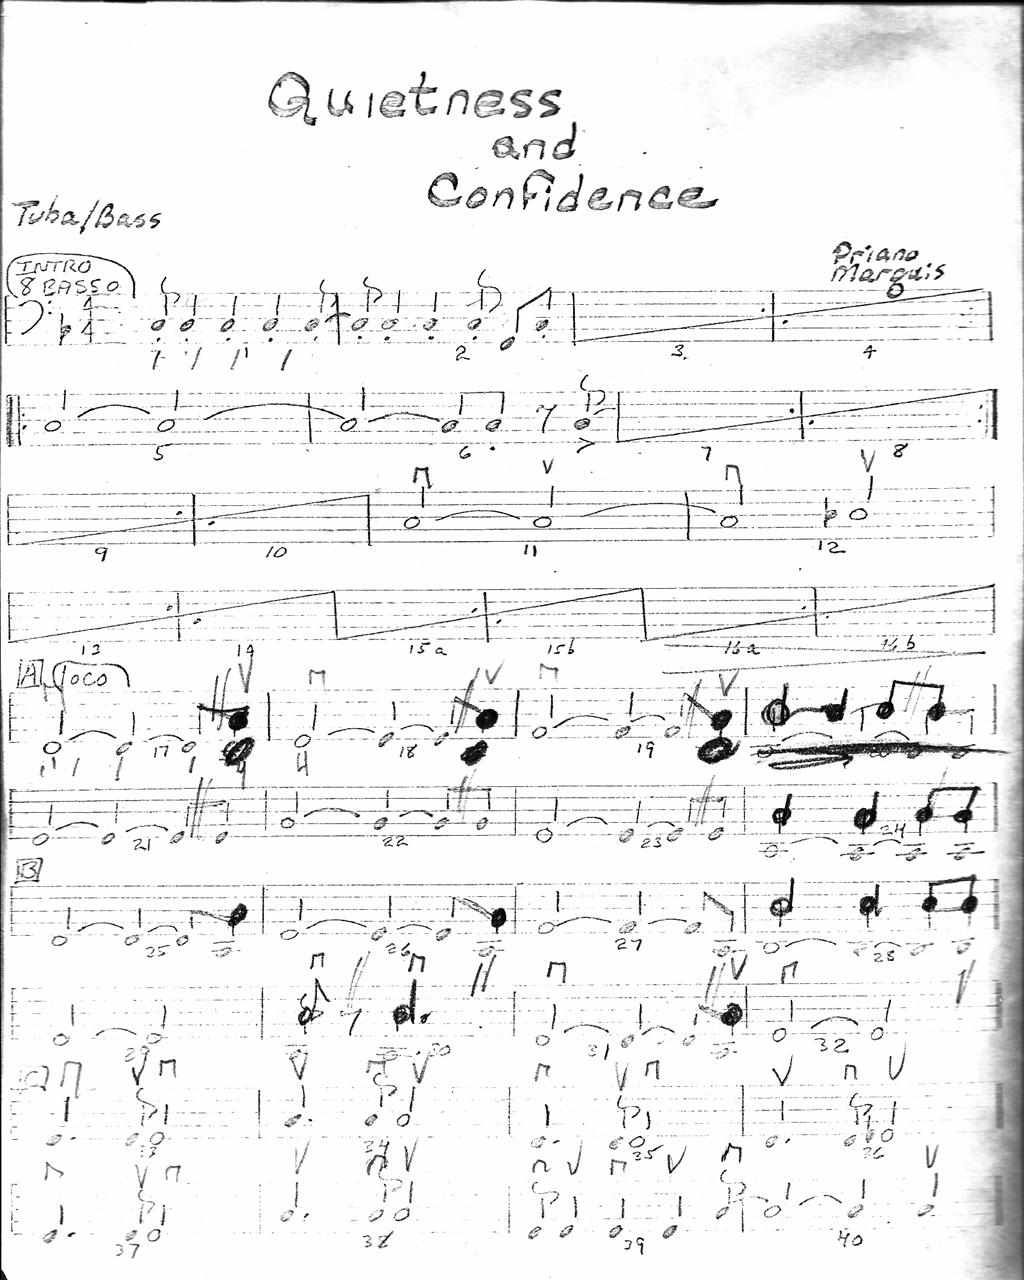 Quietness
and
Confidence
Tuba/Bass
Priano
Marquis
INTRO
8 BASSO
4
4
1 2 3. 4
5 6 7 8
9 10 11 12
13 14 15a 15b 16a 16b
A LOCO
17 18 19
21 22 23 24
B
25 26 27 28
29 30 31 32
33 34 35 36
37 38 39 40